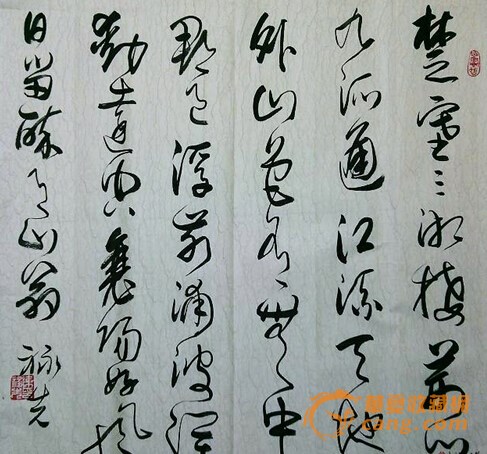 楚塞三湘接荆门
九派通江流天地
外山色有无中
郡邑浮前浦波澜
动远空襄阳好风
日留醉与山翁
华夏收藏网
cang.com